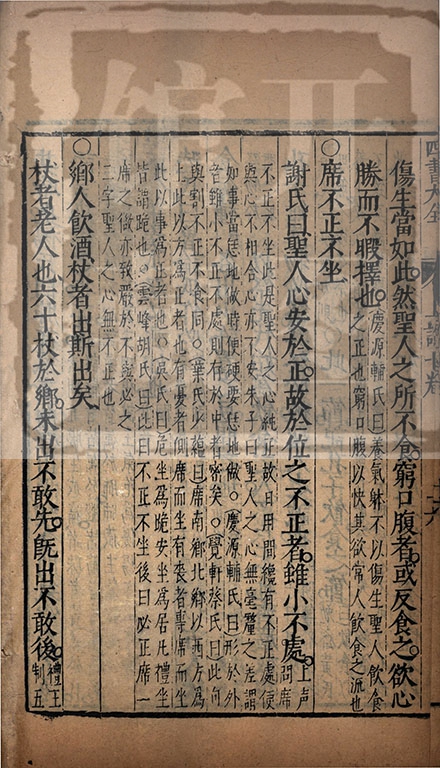 四書大全
傷生當如此然聖人之所不食窮口腹者或反食之欲心
勝而不暇擇也慶源輔氏曰養氣躰不以傷生聖人飲食
之正也窮口腹以快其欲常人飲食之流也
○席不正不坐
謝氏曰聖人心安於正故於位之不正者雖小不處上声
問席
不正不坐此是聖人之心純正故日用間纔有不正處便
與心不相合心亦不安朱子曰聖人之心無毫釐之差謂
如事當恁地做時便硬要恁地做○慶源輔氏曰形於外
者雖小不正不處則存於中者密矣○覺軒蔡氏曰此句
與割不正不食同○葉氏少蘊曰席南鄉北鄉以西方為
上此以方為正者也有憂者側席而坐有喪者專席而坐
此以事為正者也○吳氏曰危坐為跪安坐為居凡禮坐
皆謂跪也○雲峰胡氏曰此曰不正不坐後曰必正席一
席之微亦致嚴於不與必之
二字聖人之心無不正也
○鄉人飲酒杖者出斯出矣
杖者老人也六十杖於鄉未出不敢先既出不敢後禮王
制五